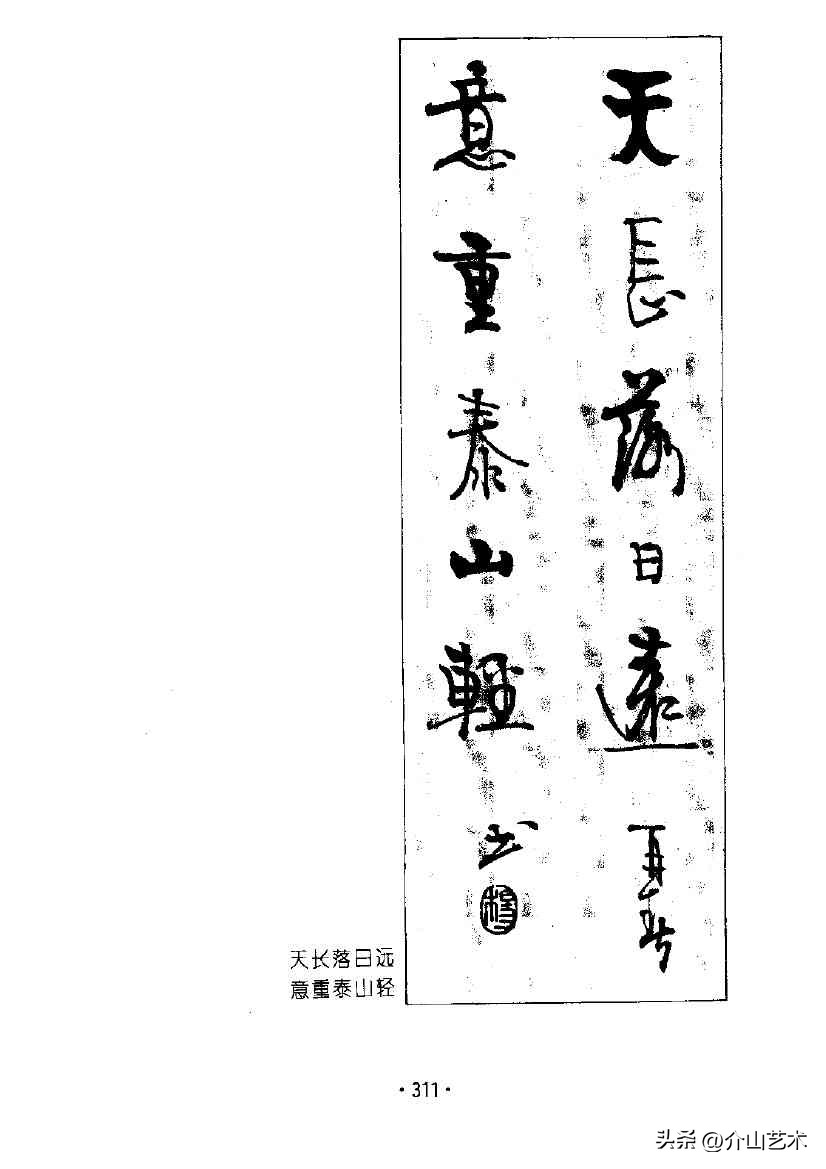 天長落日遠
意重泰山輕
书
天长落日远
意重泰山轻
·311·
头条 @介山艺术